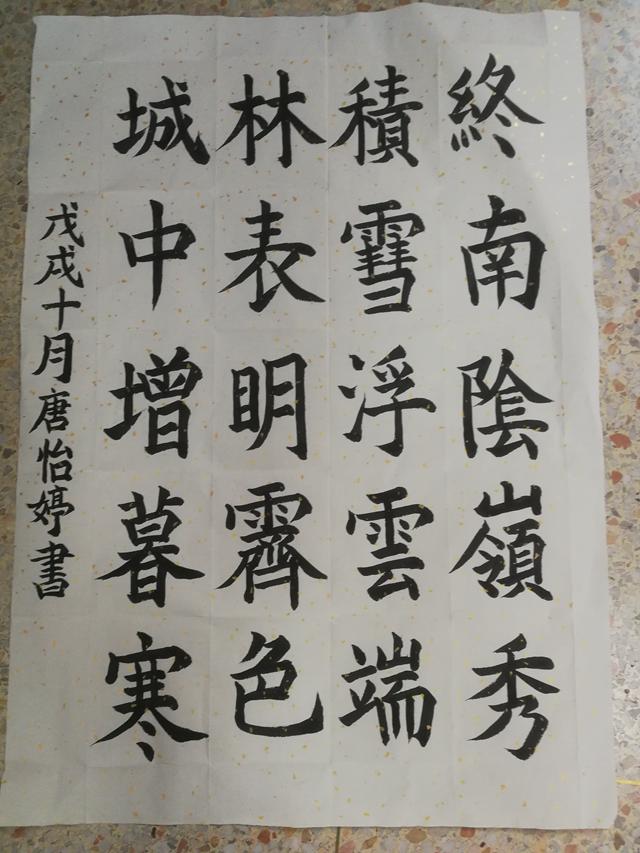 終南陰嶺秀
積雪浮雲端
林表明霽色
城中增暮寒
戊戌十月唐怡婷書